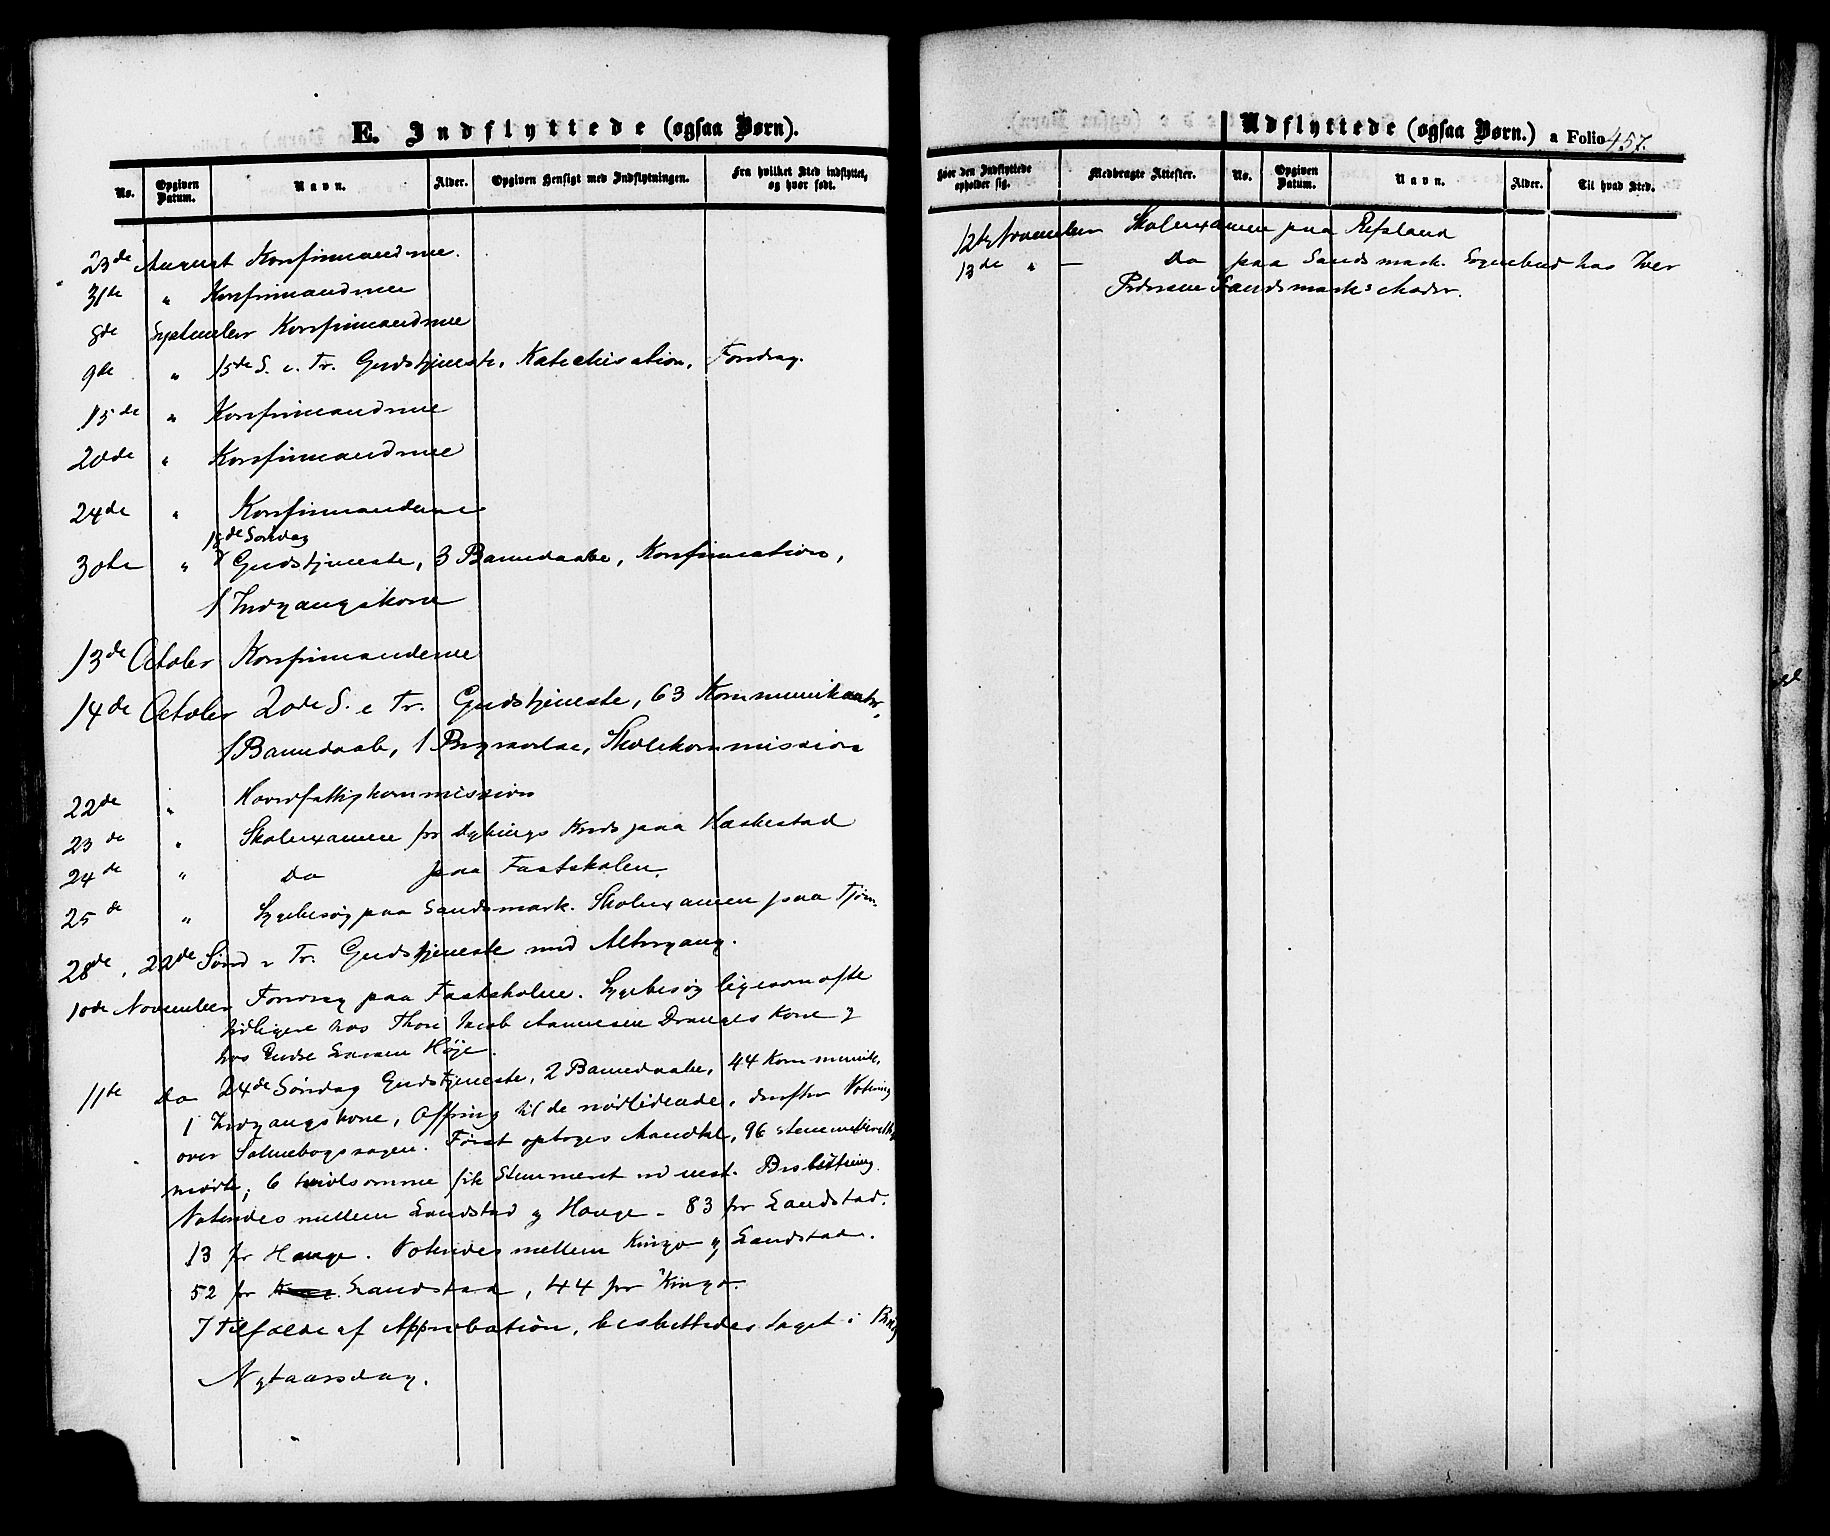 E. Indflyttede (ogsaa Børn).
No. Opgiven Datum. Navn. Alder. Opgiven Hensigt med Indflytningen. Fra hvilket Sted indflyttet, og hvor født.
23de August Konfirmanderne.
31te " Konfirmanderne
8de September Konfirmanderne
9de " 15de S. e. Tr. Gudstjeneste, Katechisation, Foredrag.
15de " Konfirmanderne
20de " Konfirmanderne
24de " Konfirmanderne
18de Søndag
30te " Gudstjeneste, 3 Barnedaabe, Konfirmation,
1 Indgangskone
13de October Konfirmanderne
14de October 20de S. e Tr. Gudstjeneste, 63 Kommunikanter,
1 Barnedaab, 1 Begravelse, Skolekommission
22de " Hovedfattigkommission
23de " Skolexamen for Dybings Kreds paa Haskestad
24de " Do paa Fastskolen.
25de " Sygebesøg paa Sandsmark. Skolexamen paa
28de, 22de Sønd e Tr. Gudstjeneste med Altergang.
10de November Foredrag paa Fastskolen. Sygebesøg ligesom ofte
tidligere hos Thore Jacob Aanensen Dranges Kone &
hos Endre Larsen Høje.
11te Do 24de Søndag Gudstjeneste, 2 Barnedaabe, 44 Kommunik.
1 Indgangskone, Offring til de nødlidende, derefter Votering
over Salmebogssagen. Først optoges Mandtal, 96 stemmeberettig
mødte; 6 tvivlsomme fik Stemmeret ved enst. Beslutning.
Voteredes mellem Landstad & Hauge - 83 for Landstad.
13 for Hauge. Voteredes mellem Kingo & Landstad.
52 for Landstad, 44 for Kingo.
I Tilfælde af Approbation, besluttedes taget i Brug
Nytaarsdag.
Udflyttede (ogsaa Børn.) a Folio 457.
hvor den Indflyttede opholder sig. Medbragte Attester. No. Opgiven Datum. Navn. Alder. Til hvad Sted.
12te November Skolexamen paa Refsland
13de " — Do paa Sandsmark. Sognebud hos Iver
Pedersen Sandsmarks Moder.